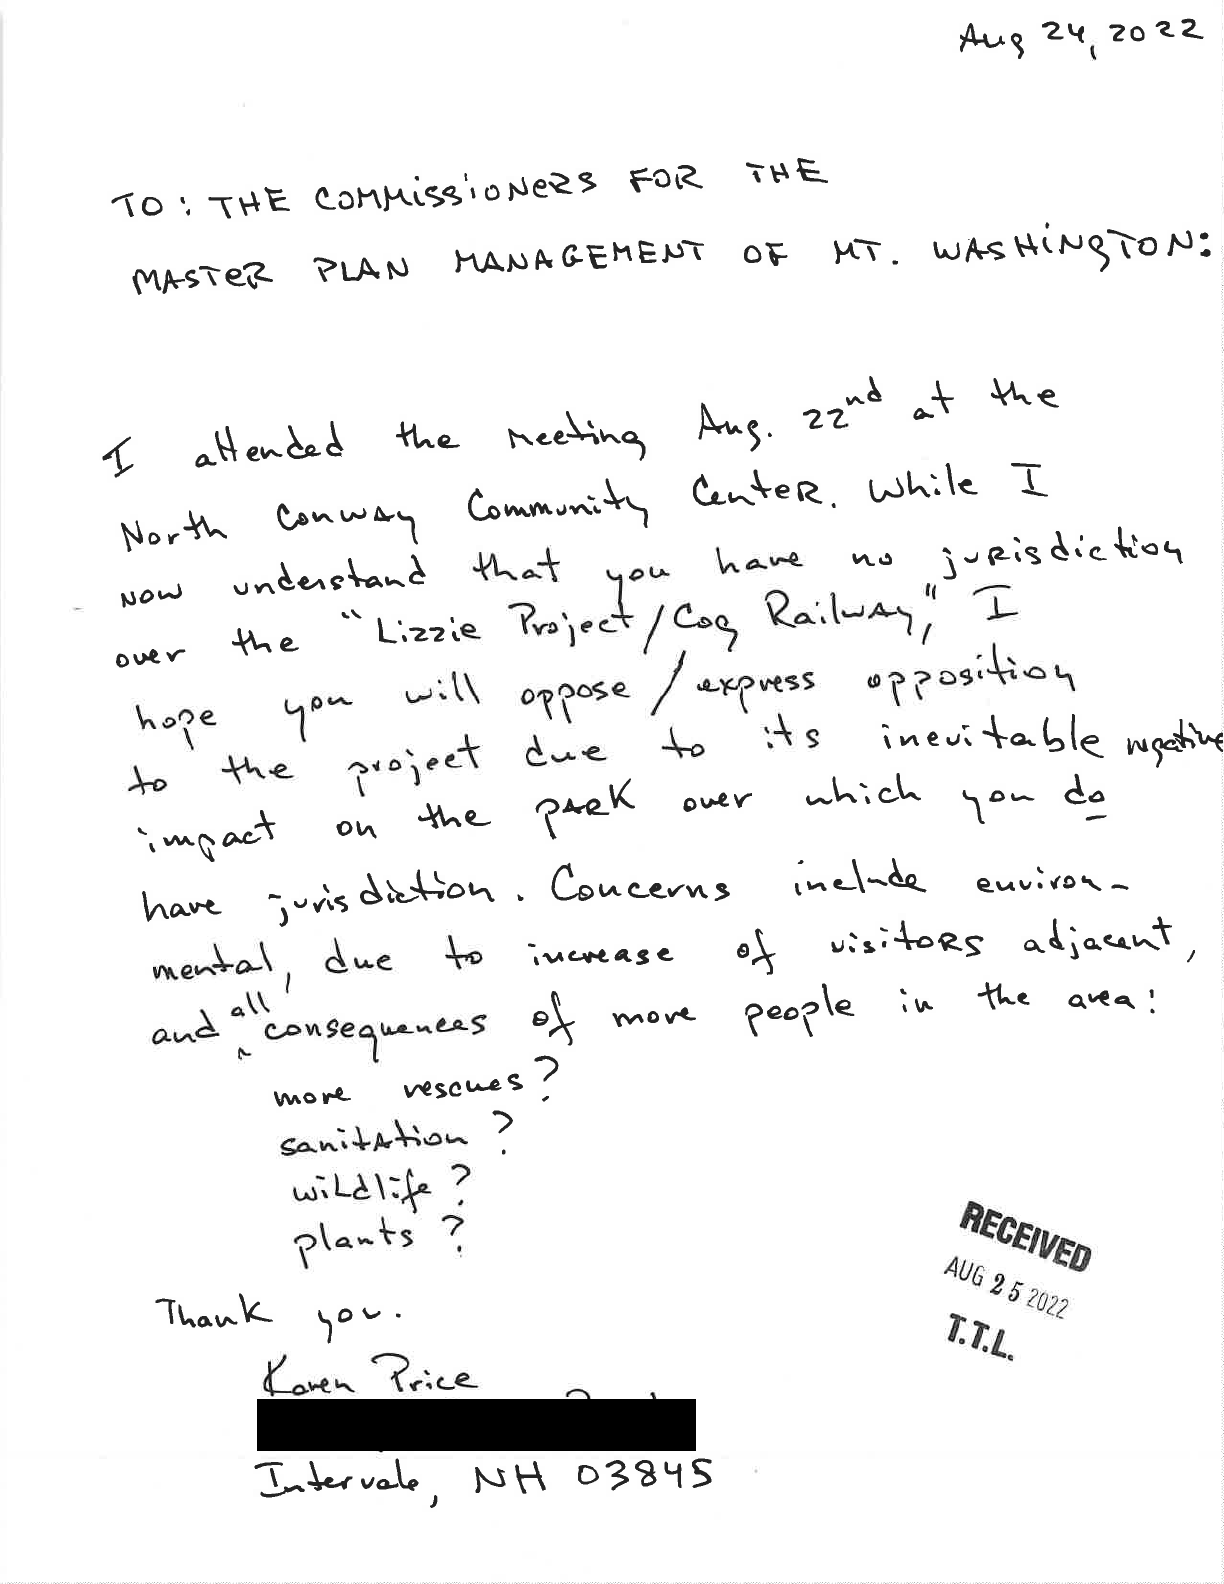 Aug 24, 2022
TO: THE COMMISSIONERS FOR THE
MASTER PLAN MANAGEMENT OF MT. WASHINGTON:
I attended the meeting Aug. 22nd at the
North Conway Community Center. While I
now understand that you have no jurisdiction
over the "Lizzie Project/Cog Railway," I
hope you will oppose/express opposition
to the project due to its inevitable negative
impact on the park over which you do
have jurisdiction. Concerns include environ-
mental, due to increase of visitors adjacent,
and all consequences of more people in the area:
more rescues?
sanitation?
wildlife?
plants?
Thank you.
Karen Price
Intervale, NH 03845
RECEIVED
AUG 25 2022
T.T.L.